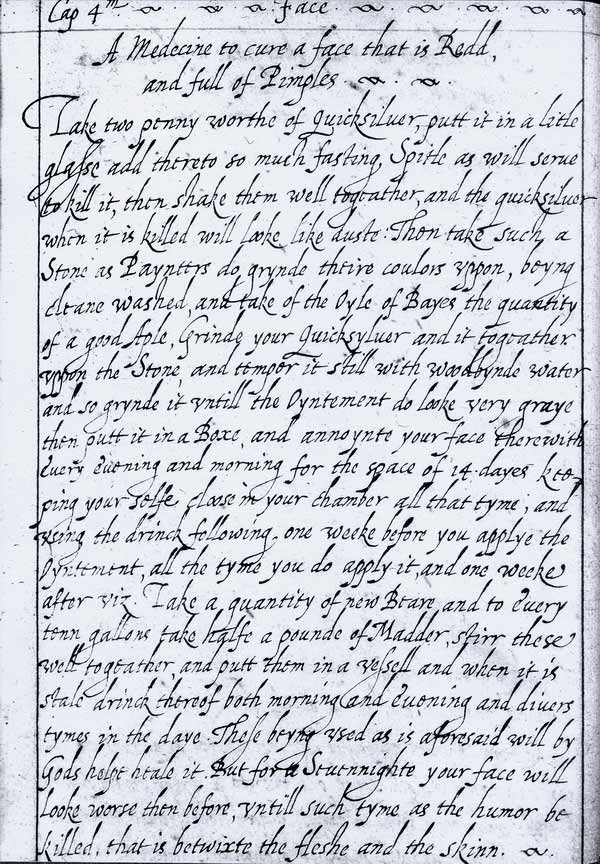 Cap 4m face
A Medecine to cure a face that is Redd,
and full of Pimples
Take two penny worthe of Quicksilver, putt it in a litle
glasse add thereto so much fasting Spitle as will serve
to kill it, then shake them well togeather, and the quicksilver
when it is killed will looke like duste: Then take such a
Stone as Paynters do grynde theire coulors vppon, beyng
cleane washed, and take of the Oyle of Bayes the quantity
of a good, Grinde your Quicksylver and it togeather
vppon the Stone and temper it still with woodbynde water
and so grynde it vntill the Oyntement do looke very graye
then putt it in a Boxe, and annoynte your face therewith
every evening and morning for the space of 14 dayes kee-
ping your selfe close in your chamber all that tyme, and
vsing the drinck following, one weeke before you applye the
Oyntement, all the tyme you do apply it, and one weeke
after viz Take a quantity of new Beare, and to every
tenn gallons take halfe a pounde of Madder, stirr these
well togeather and putt them in a vessell and when it is
stale drinck thereof both morning and evening and divers
tymes in the daye. These beyng vsed as is aforesaid will by
Gods helpe heale it. But for a Sevennighte your face will
looke worse then before, vntill such tyme as the humor be
killed, that is betwixte the fleshe and the skinn.